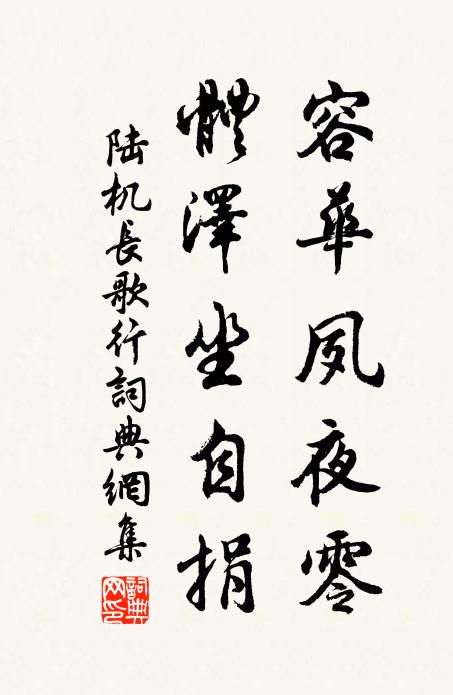 容華夙夜零
體澤坐自捐
陆机長歌行詞典網集
詞典
网印